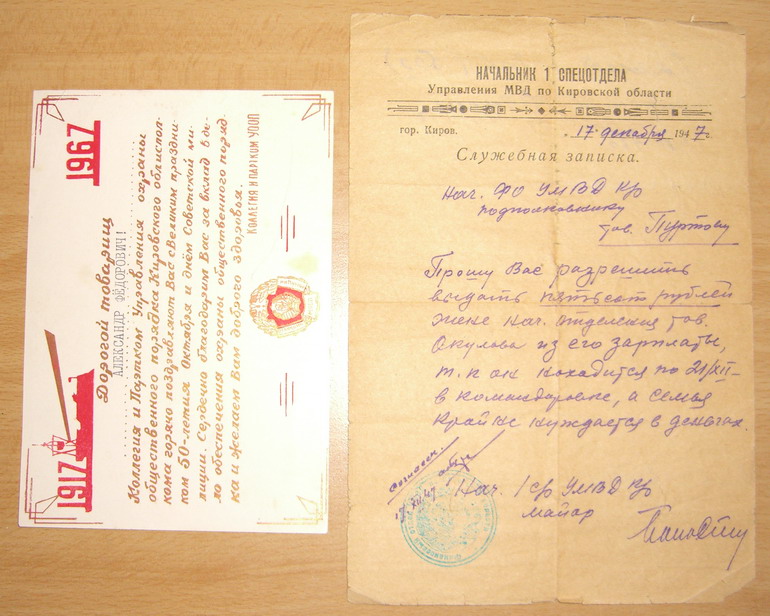 1917
1967
Дорогой товарищ
АЛЕКСАНДР ФЁДОРОВИЧ!
Коллегия и Партком Управления охраны
общественного порядка Кировского облиспол-
кома горячо поздравляют Вас с Великим праздни-
ком 50-летия Октября и днём Советской ми-
лиции. Сердечно благодарим Вас за вклад в де-
ло обеспечения охраны общественного поряд-
ка и желаем Вам доброго здоровья.
КОЛЛЕГИЯ И ПАРТКОМ УООП
НАЧАЛЬНИК 1 СПЕЦОТДЕЛА
Управления МВД по Кировской области
гор. Киров. „17" декабря 1947г.
Служебная записка.
Нач. ФО УМВД КО
подполковнику
тов. Пуртову
Прошу Вас разрешить
выдать пятьсот рублей
жене нач. отделения тов.
Окулова из его зарплаты,
т.к он находится по 21/XII-
в командировке, а семья
крайне нуждается в деньгах.
Нач. 1СО УМВД КО
майор